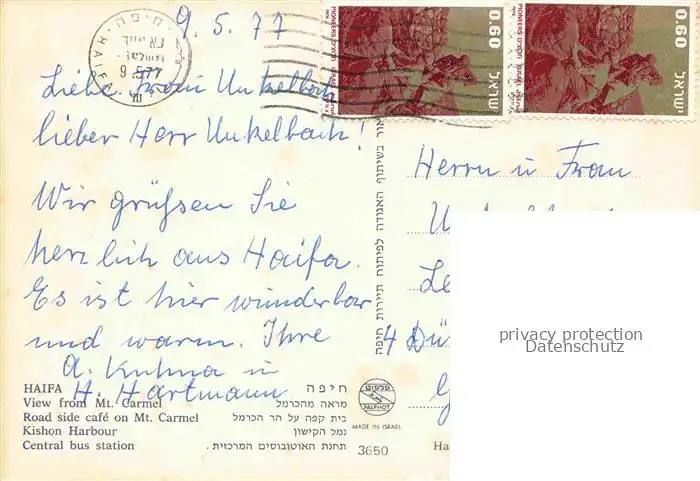 9.5.77
חיפה
HAIFA
9.5.77
PIONEERS ISRAEL ישראל 0.60
PIONEERS ISRAEL ישראל 0.60
Liebe Frau Unkelbach
lieber Herr Unkelbach!
Wir grüßen Sie
herzlich aus Haifa.
Es ist hier wunderbar
und warm. Ihre
A. Kuhna u
H. Hartmann
Herrn u Frau
4 Dü
privacy protection
Datenschutz
HAIFA חיפה
View from Mt. Carmel מראה מהכרמל
Road side café on Mt. Carmel בית קפה על הר הכרמל
Kishon Harbour נמל הקישון
Central bus station תחנת האוטובוסים המרכזית.
פלפוט
PALPHOT
MADE IN ISRAEL
3650
Ha